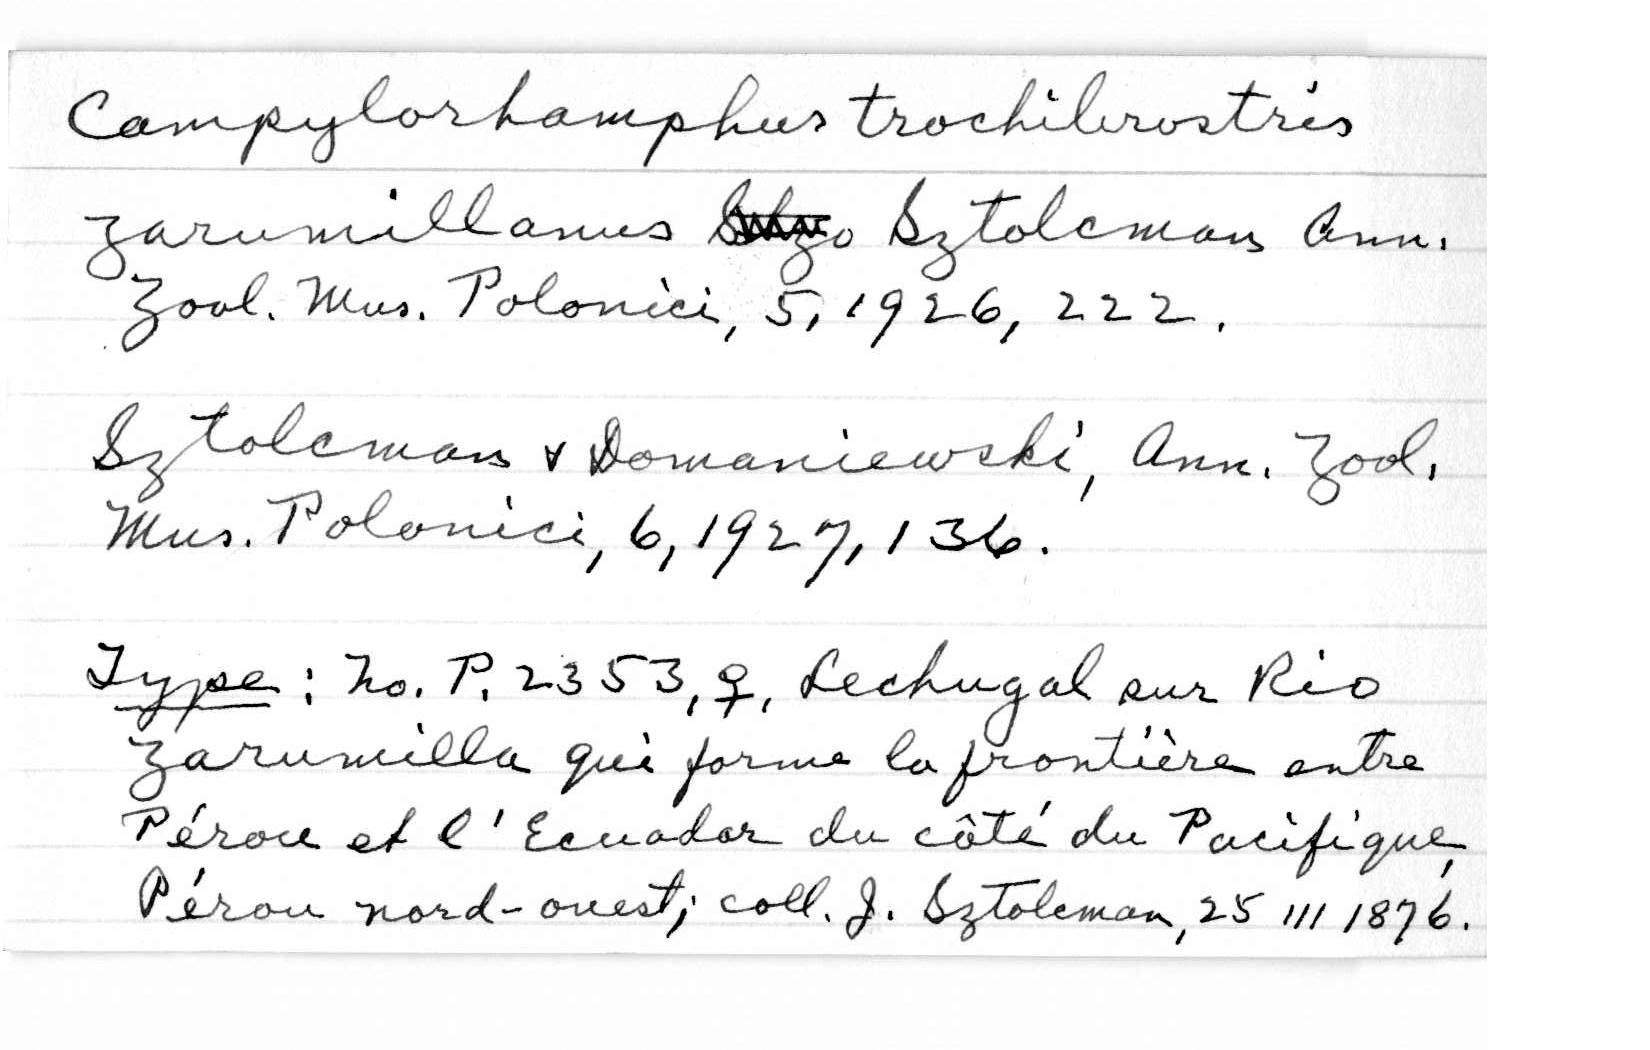 Campylorhamphus trochilirostris
zarumillanus Sztolcman Ann.
Zool. Mus. Polonici, 5, 1926, 222.
Sztolcman & Domaniewski, Ann. Zool.
Mus. Polonici, 6, 1927, 136.
Type: No. P. 2353, ♀, Lechugal sur Rio
Zarumilla qui forme la frontière entre
Pérou et l'Ecuador du côté du Pacifique,
Pérou nord-ouest; coll. J. Sztolcman, 25 III 1876.